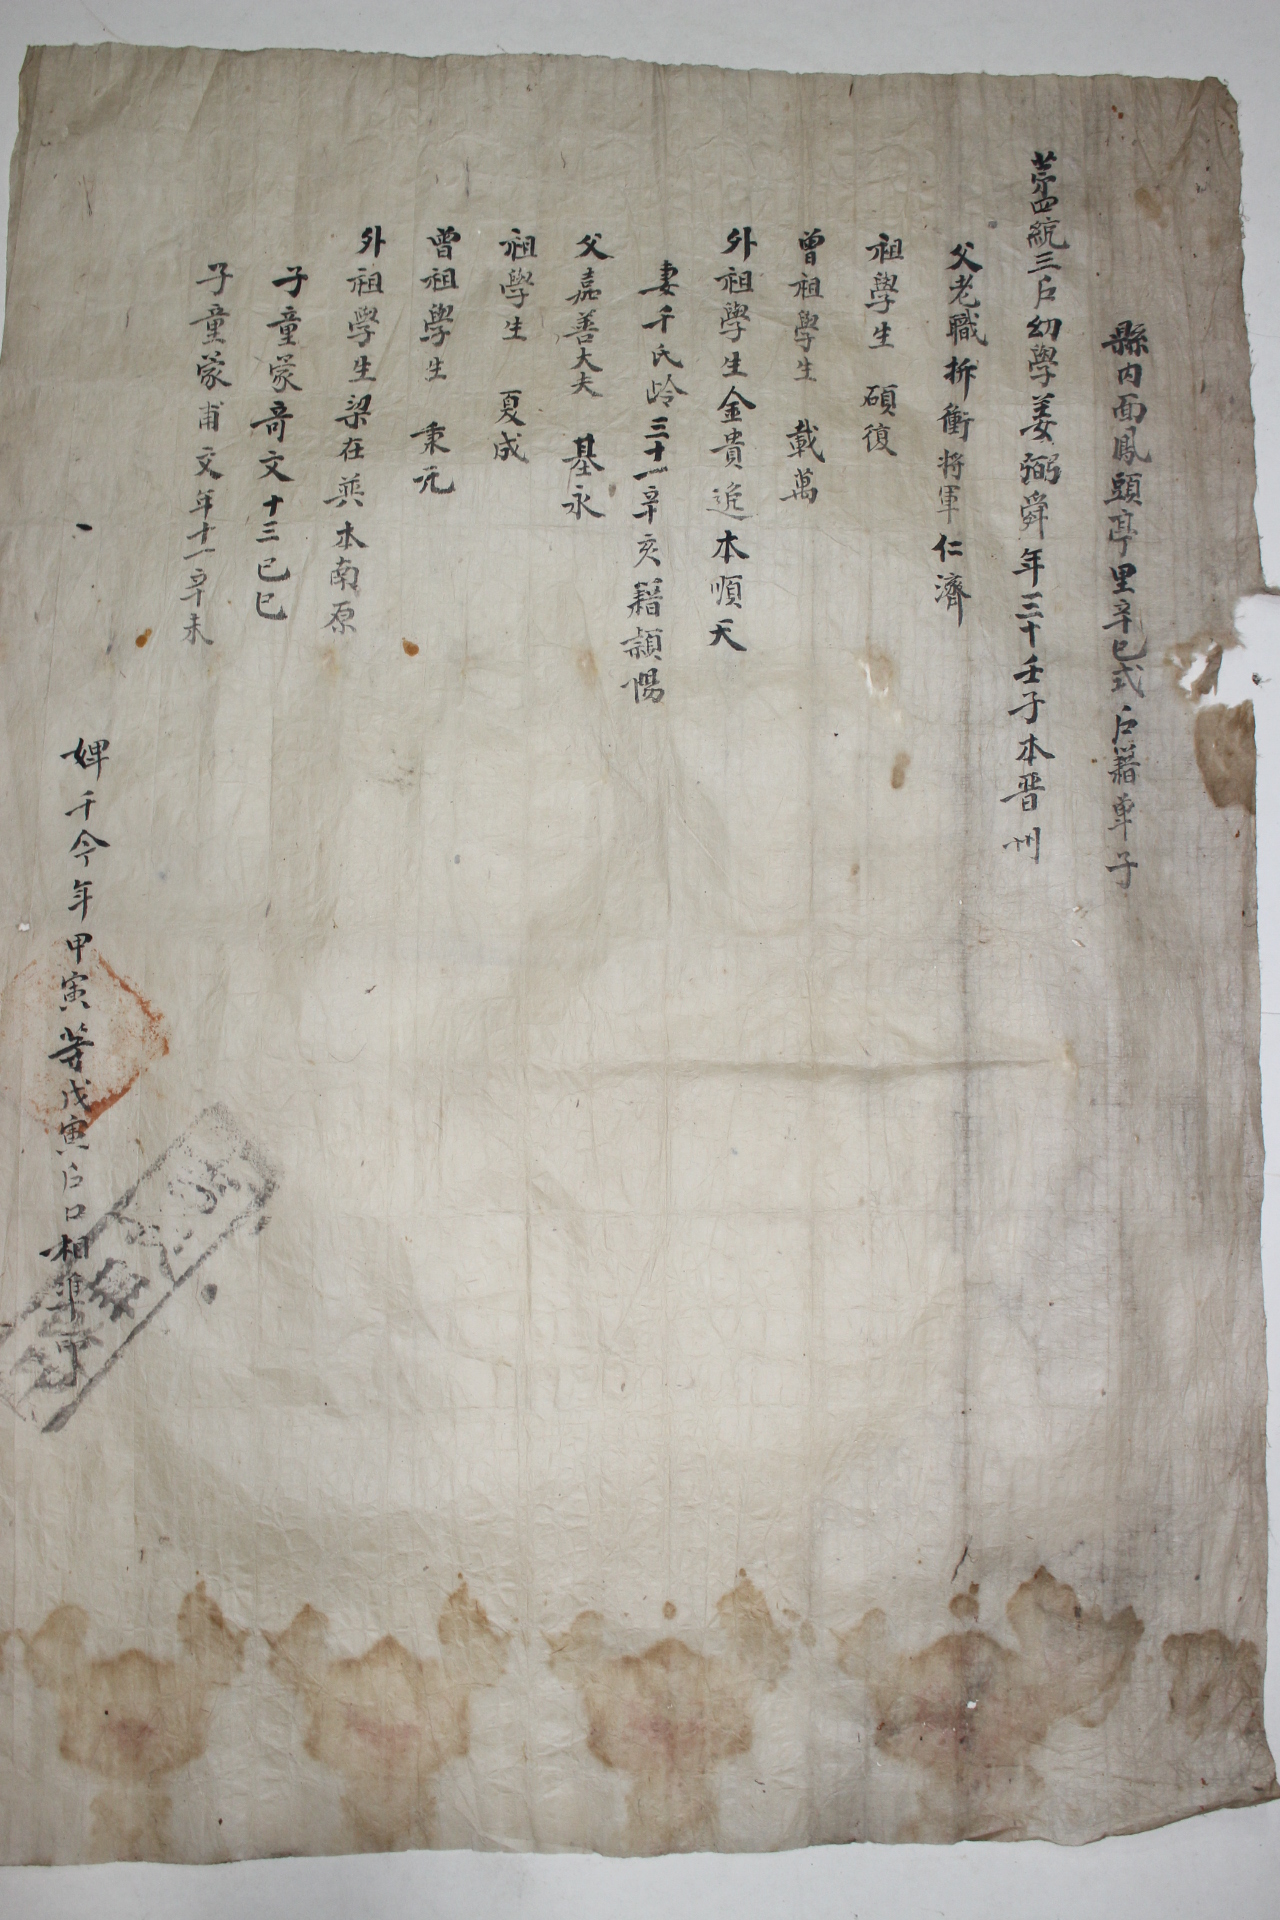 縣內面鳳頭亭里辛巳式戶籍單子
第四統三戶幼學姜弼舜年三十壬子本晋州
父老職折衝將軍仁濟
祖學生 碩復
曾祖學生 載萬
外祖學生金貴追本順天
妻千氏齡三十一辛亥籍潁陽
父嘉善大夫 基永
祖學生 夏成
曾祖學生 秉元
外祖學生梁在英本南原
子童蒙奇文十三己巳
子童蒙甫文年十一辛未
婢千今年甲寅等戊寅戶口相準印